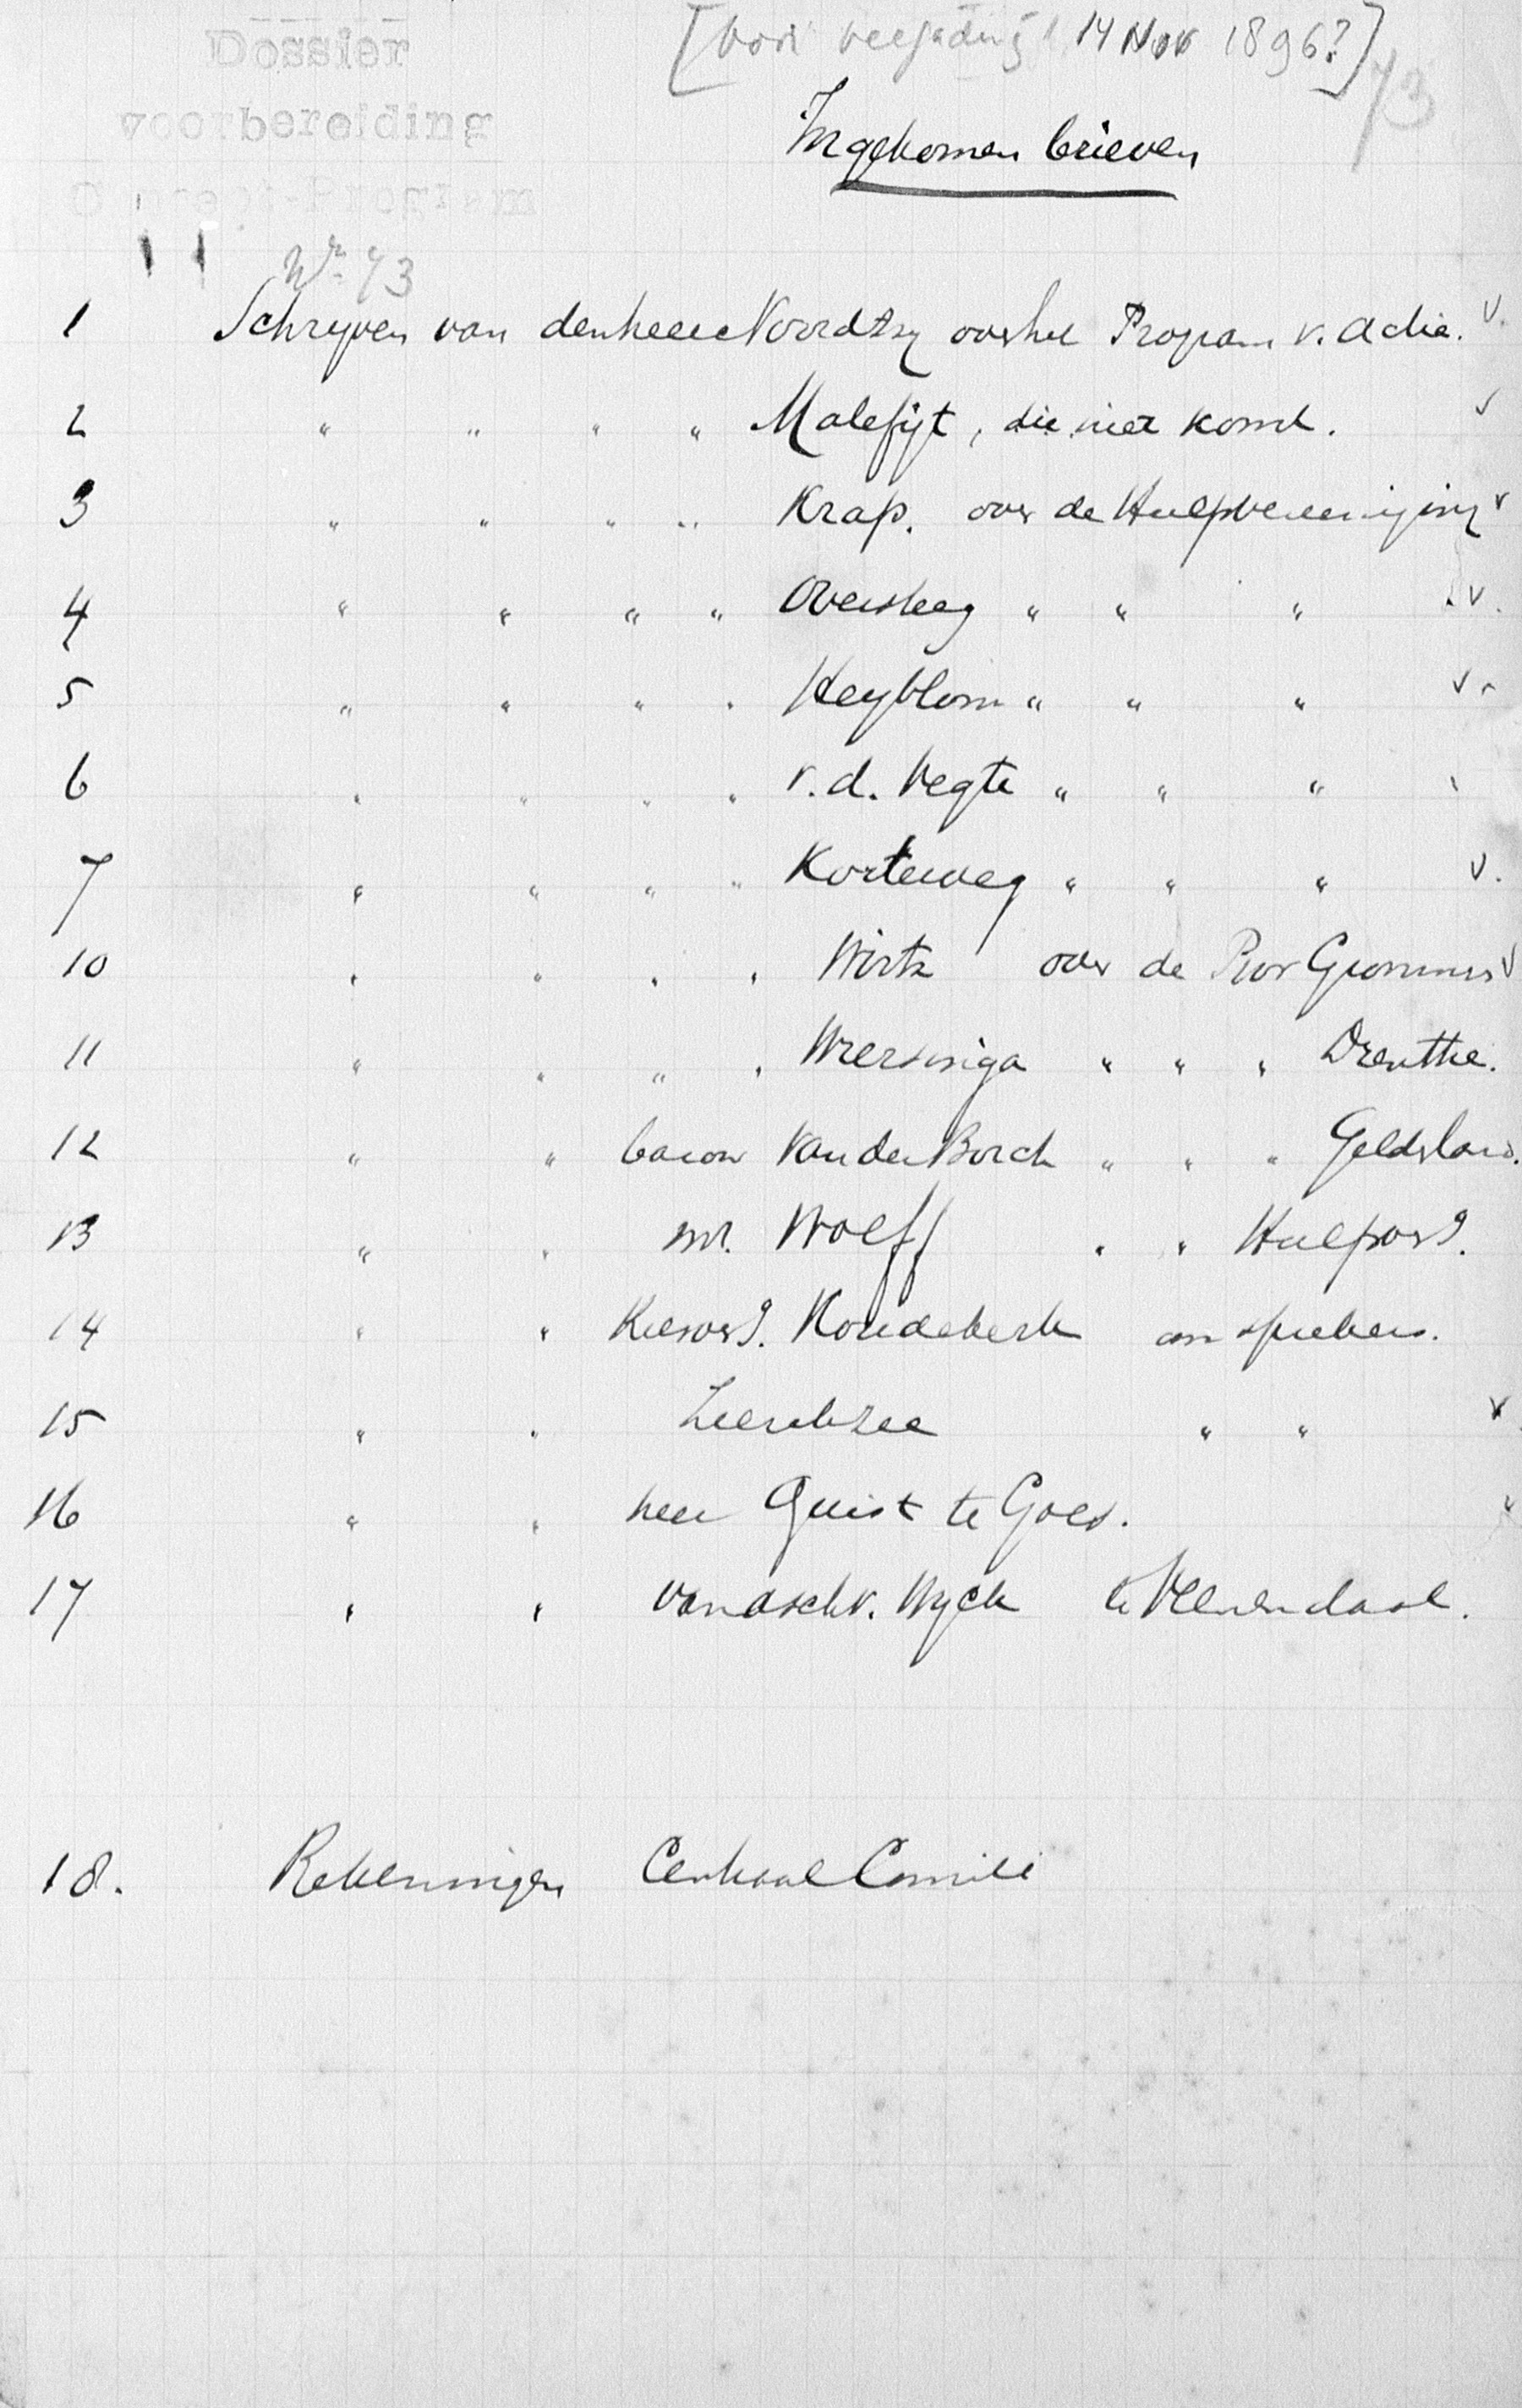 Dossier
voorbereiding
Program
[voor vergadering 14 Nov 1896?]
73
Ingekomen brieven
Nr. 73
1 Schryven van den heere Noordtzy over het Program v. Actie. v.
2 " " " " Malefijt, die niet komt. v
3 " " " " Krap. over de Hulpvereeniging v
4 " " " " Oversteeg " " " v.
5 " " " " Heyblom " " " v
6 " " " " v.d. Vegte " " "
7 " " " " Korteweg " " " v.
10 " " " " Wirtz over de Prov Gronings v
11 " " " " Wiersinga " " " Drenthe.
12 " " baron Van der Borch " " " Gelderland.
13 " " mr. Wolff " " Hulpver9.
14 " " Kiesver9. Koudekerk om sprekers.
15 " " Zierikzee " " v
16 " " heer Quist te Goes. v
17 " " van Asch v. Wyck te Veenendaal.
18. Rekeningen Centraal Comité